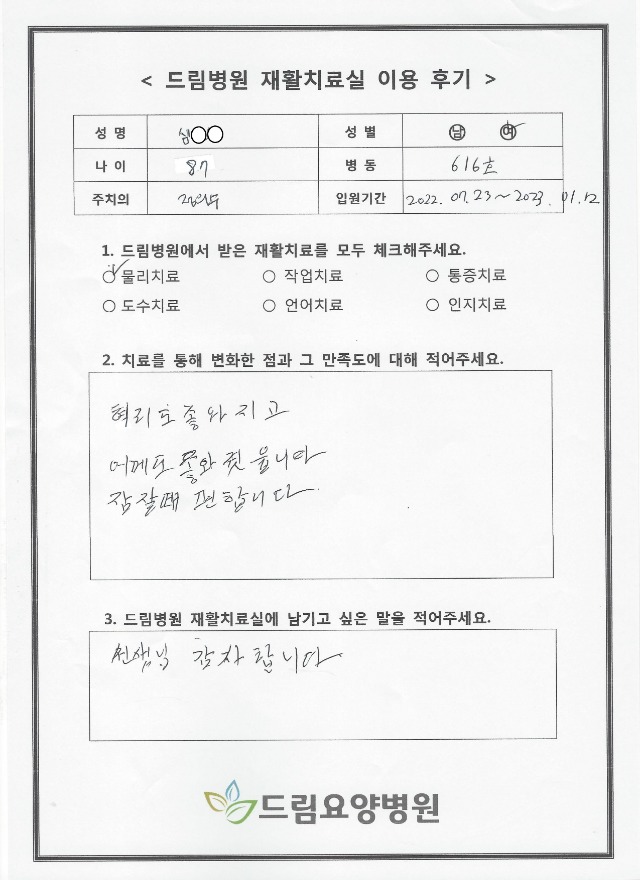 < 드림병원 재활치료실 이용 후기 >
성 명 심○○ 성 별 남 여
나 이 87 병 동 616호
주치의 입원기간 2022. 07.23~2023. 01.12
1. 드림병원에서 받은 재활치료를 모두 체크해주세요.
○ 물리치료 ○ 작업치료 ○ 통증치료
○ 도수치료 ○ 언어치료 ○ 인지치료
2. 치료를 통해 변화한 점과 그 만족도에 대해 적어주세요.
허리도 좋와지고
어께도 좋와젔읍니다
잠잘때 편합니다.
3. 드림병원 재활치료실에 남기고 싶은 말을 적어주세요.
선생님 감사합니다
드림요양병원